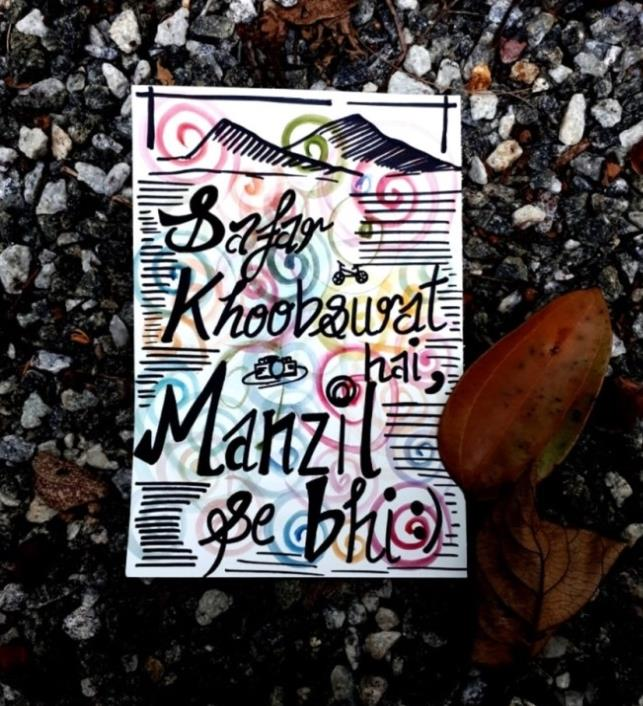 Safar
Khoobsurat
hai,
Manzil
se bhi:)